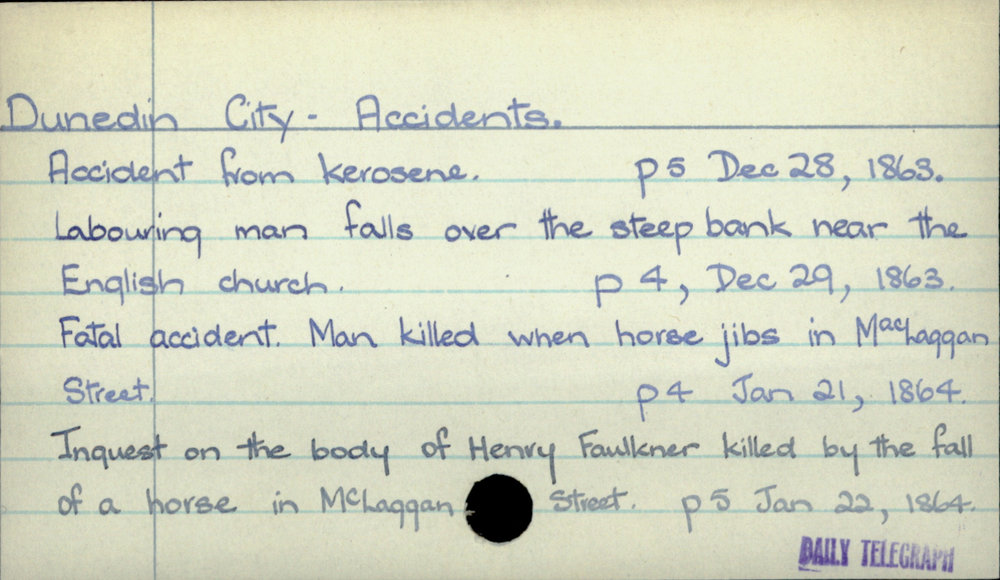 Dunedin City - Accidents.
Accident from kerosene. p 5 Dec 28, 1863.
Labouring man falls over the steep bank near the
English church. p 4, Dec 29, 1863.
Fatal accident. Man killed when horse jibs in MacLaggan
Street. p 4 Jan 21, 1864.
Inquest on the body of Henry Faulkner killed by the fall
of a horse in McLaggan Street. p 5 Jan 22, 1864.
DAILY TELEGRAPH